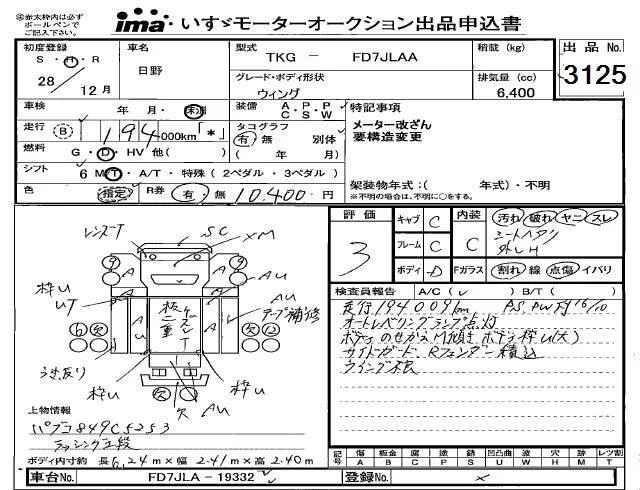 ※赤太枠内は必ず
ボールペンで
ご記入下さい。
ima いすゞモーターオークション出品申込書
初度登録 車名 型式 TKG － FD7JLAA 積載 (kg) 出品 No.
S・H・R 日野 グレード・ボディ形状 排気量 (cc) 3125
28/12月 ウィング 6,400
車検 年 月・未満 装備 A・P・P C・S・W 特記事項
走行 B 194,000km「*」 タコグラフ メーター改ざん
有・無 別体 要構造変更
燃料 G・D・HV 他( ) ( 年 月)
シフト 6 MT・A/T・特殊 (2ペダル・3ペダル) 架装物年式：( 年式)・不明
色 指定 R券 有・無 10,400円 ※不明の場合は、不明に○をする。
評価 3 キャブ C 内装 C 汚れ 破れ ヤニ スレ
フレーム C シートヘタリ
ボディ D Fガラス 割れ 線 点傷 イバリ
レンズT SC XM
枠U UT A A AU テープ補修
板二重
うき反り 枠U 枠U
欠 AU
検査員報告 A/C( ✓ ) B/T( )
走行194009km PS PW
オートレベリングランプ点灯
ボディのせかえ M傾き ボディ枠U(大)
サイドガード、Rフェンダー積込
上物情報
パブコ849C5253
ラッシング2段
ボディ内寸約 長6.24m×幅2.41m×高2.40m
記号 傷A 板金B 腐C 塗P 錆S 凹凸曲U 波W 穴H 欠M レツ割T
車台No. FD7JLA－19332 登録No.